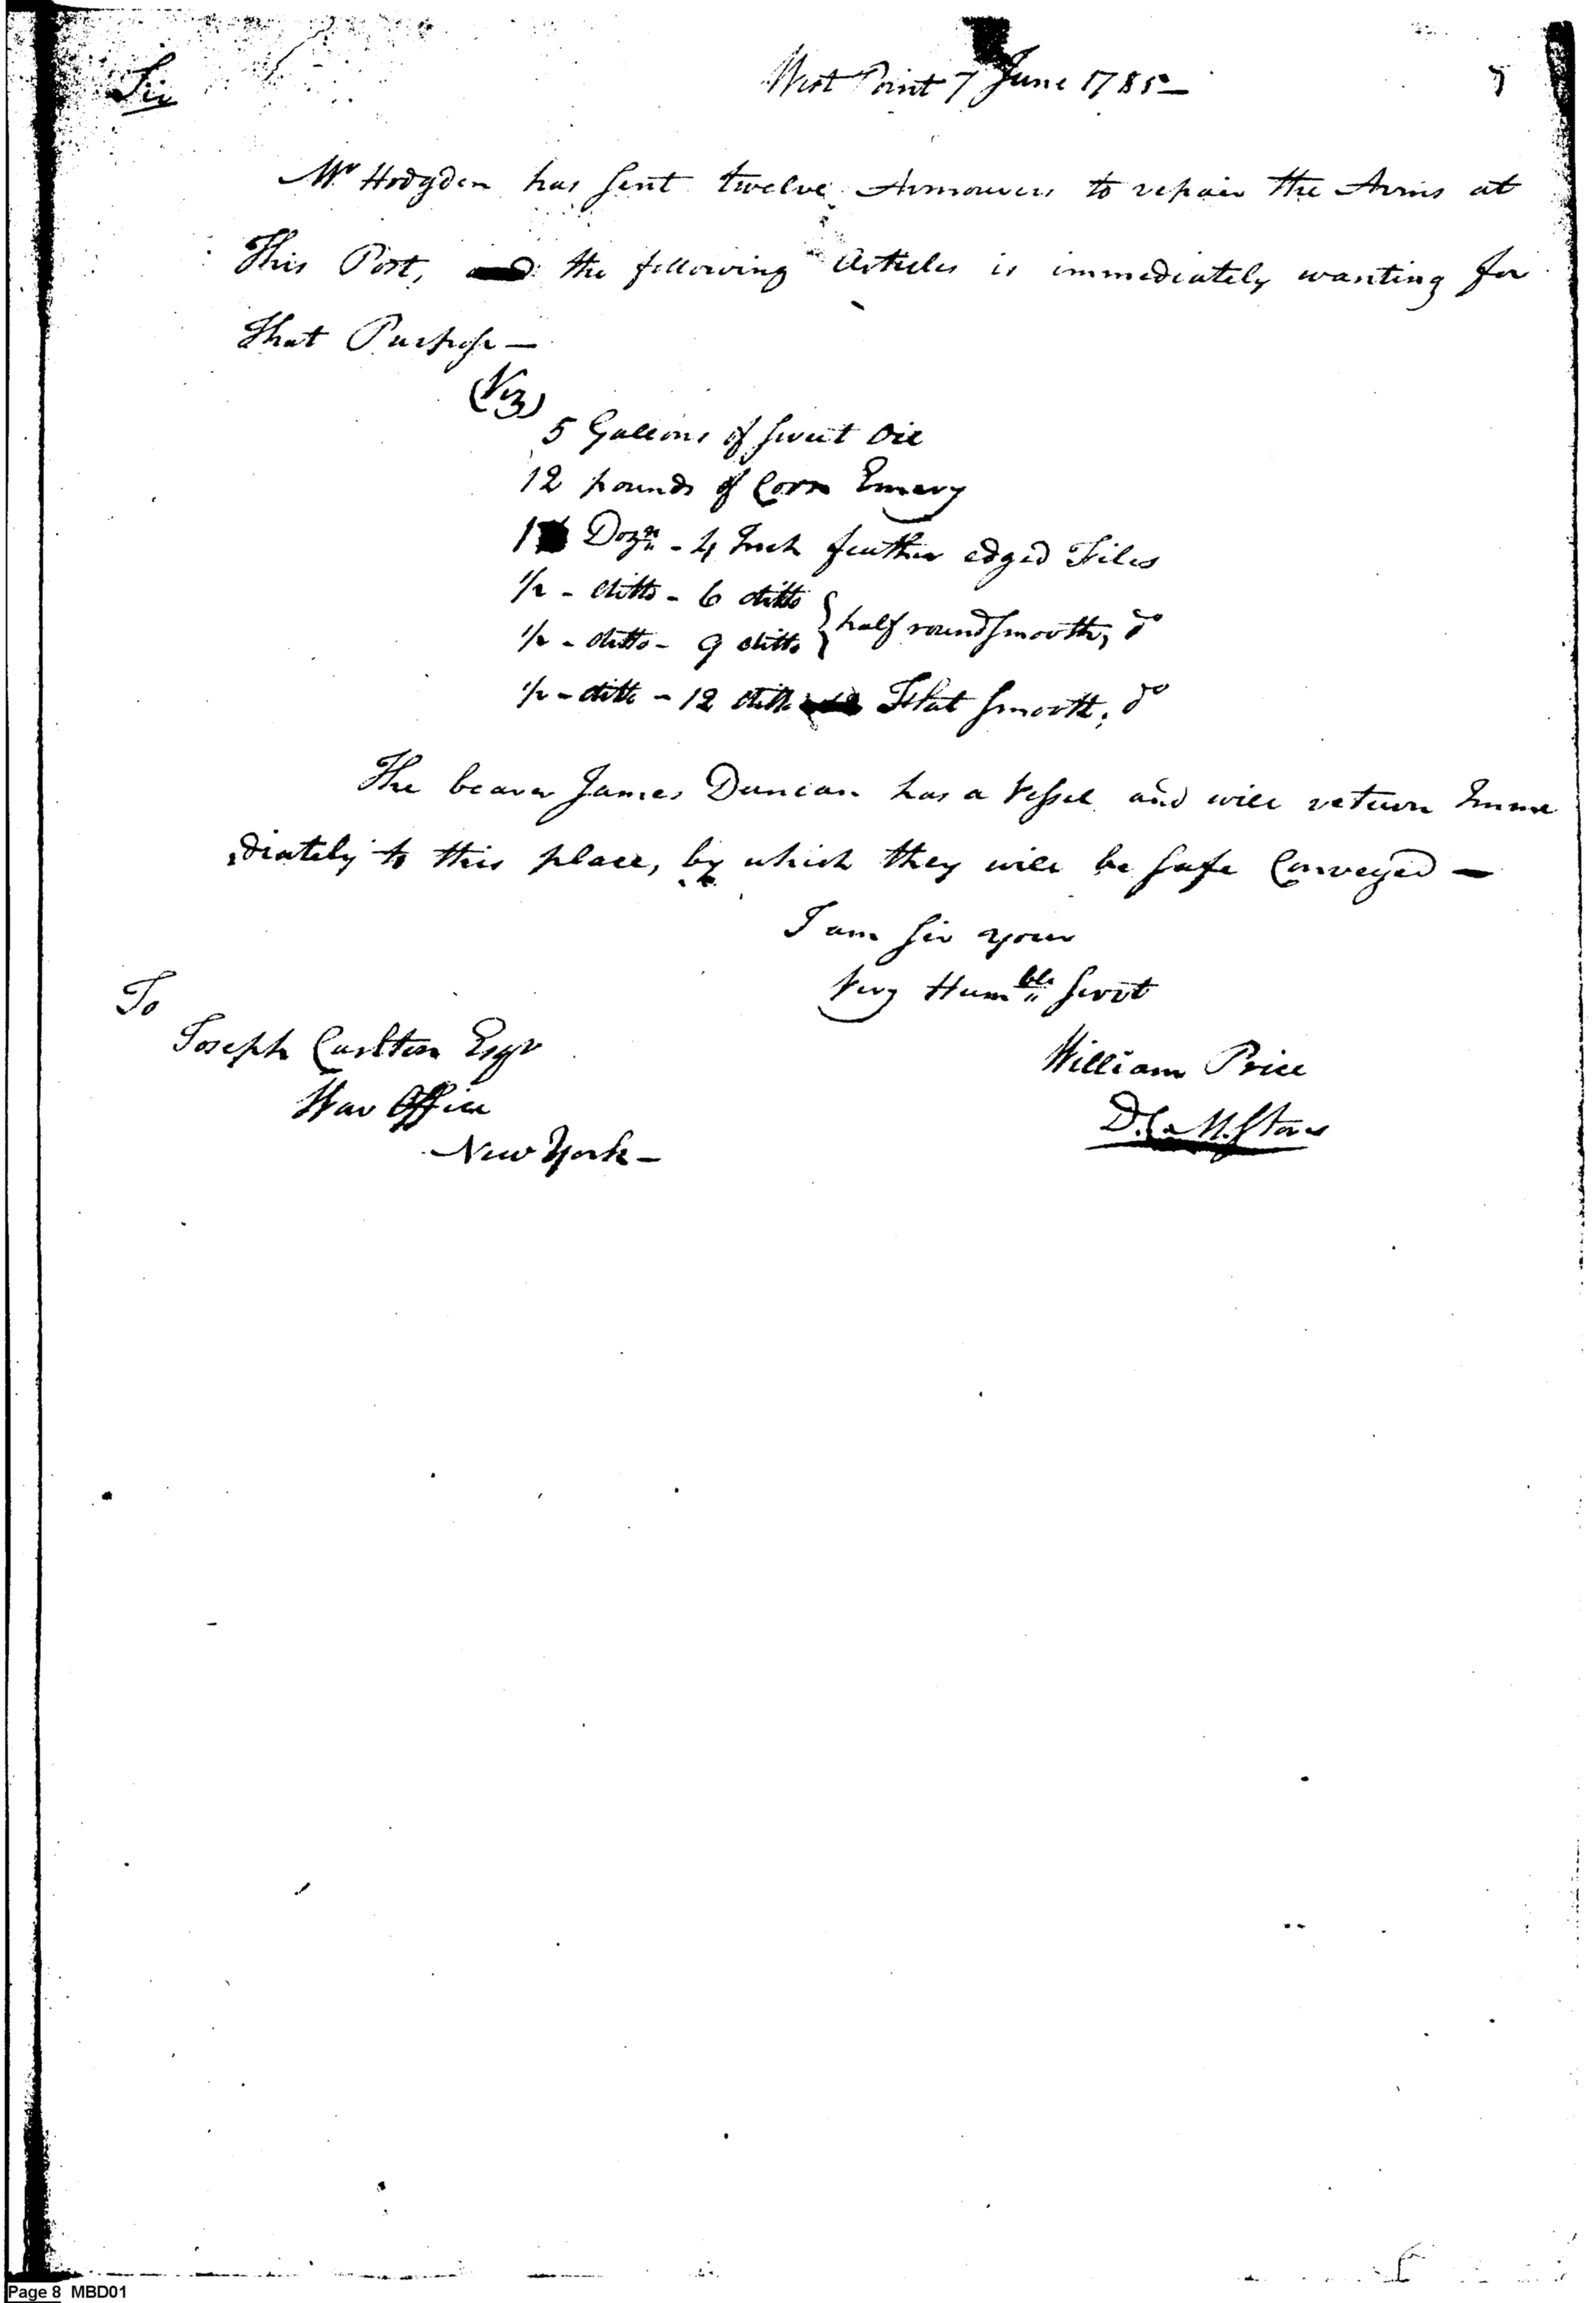 Sir
West Point 7 June 1785 —
7
Mr Hodgden has sent twelve Armourers to repair the Arms at
This Post, and the following Articles is immediately wanting for
that Purpose —
(Viz)
5 Gallons of sweet Oil
12 pounds of Corn Emery
1 Dozn - 4 Inch feather edged Files
1/2 - ditto - 6 ditto
1/2 - ditto - 9 ditto } half round smooth, do
1/2 - ditto - 12 ditto Flat smooth, do
The bearer James Duncan has a Vessel and will return Imme
diately to this place, by which they will be safe Conveyed —
I am Sir your
Very Humble Servt
To
Joseph Carlton Esqr
War Office
New York —
William Price
D.C. M. Stores
Page 8 MBD01